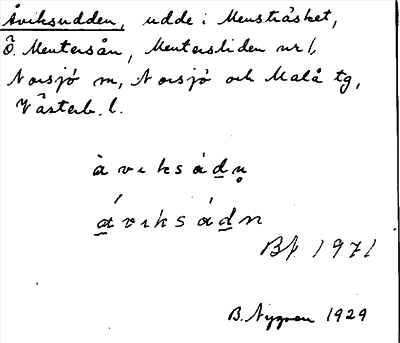 Åviksudden, udde i Mensträsket,
Ö. Mentersån, Mentersliden nr 1,
Norsjö sn, Norsjö och Malå tg,
Västerb. l.
å v ɩ k s ú d n̥
á v ɩ k s ú d n
Bf 1971
B. Nygren 1929